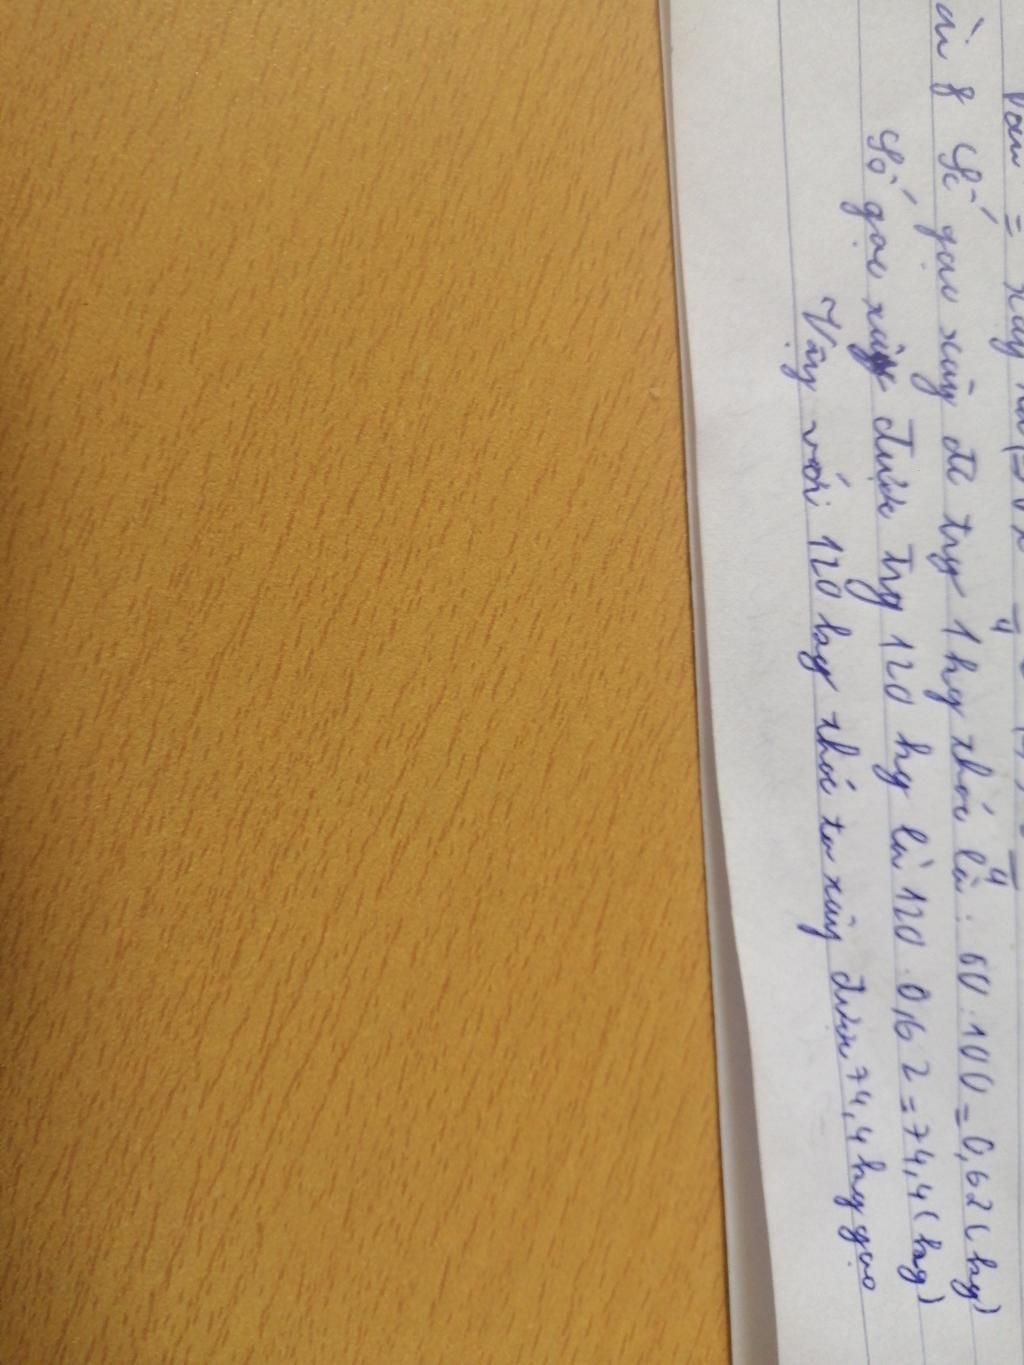 ài 8 Số gạo xáy đc trg 1 kg thóc là : 60 : 100 = 0,62 ( kg )
Số gạo xáy được trg 120 kg là 120 . 0,62 = 74,4 ( kg )
Vậy với 120 kg thóc ta xáy được 74,4 kg gạo